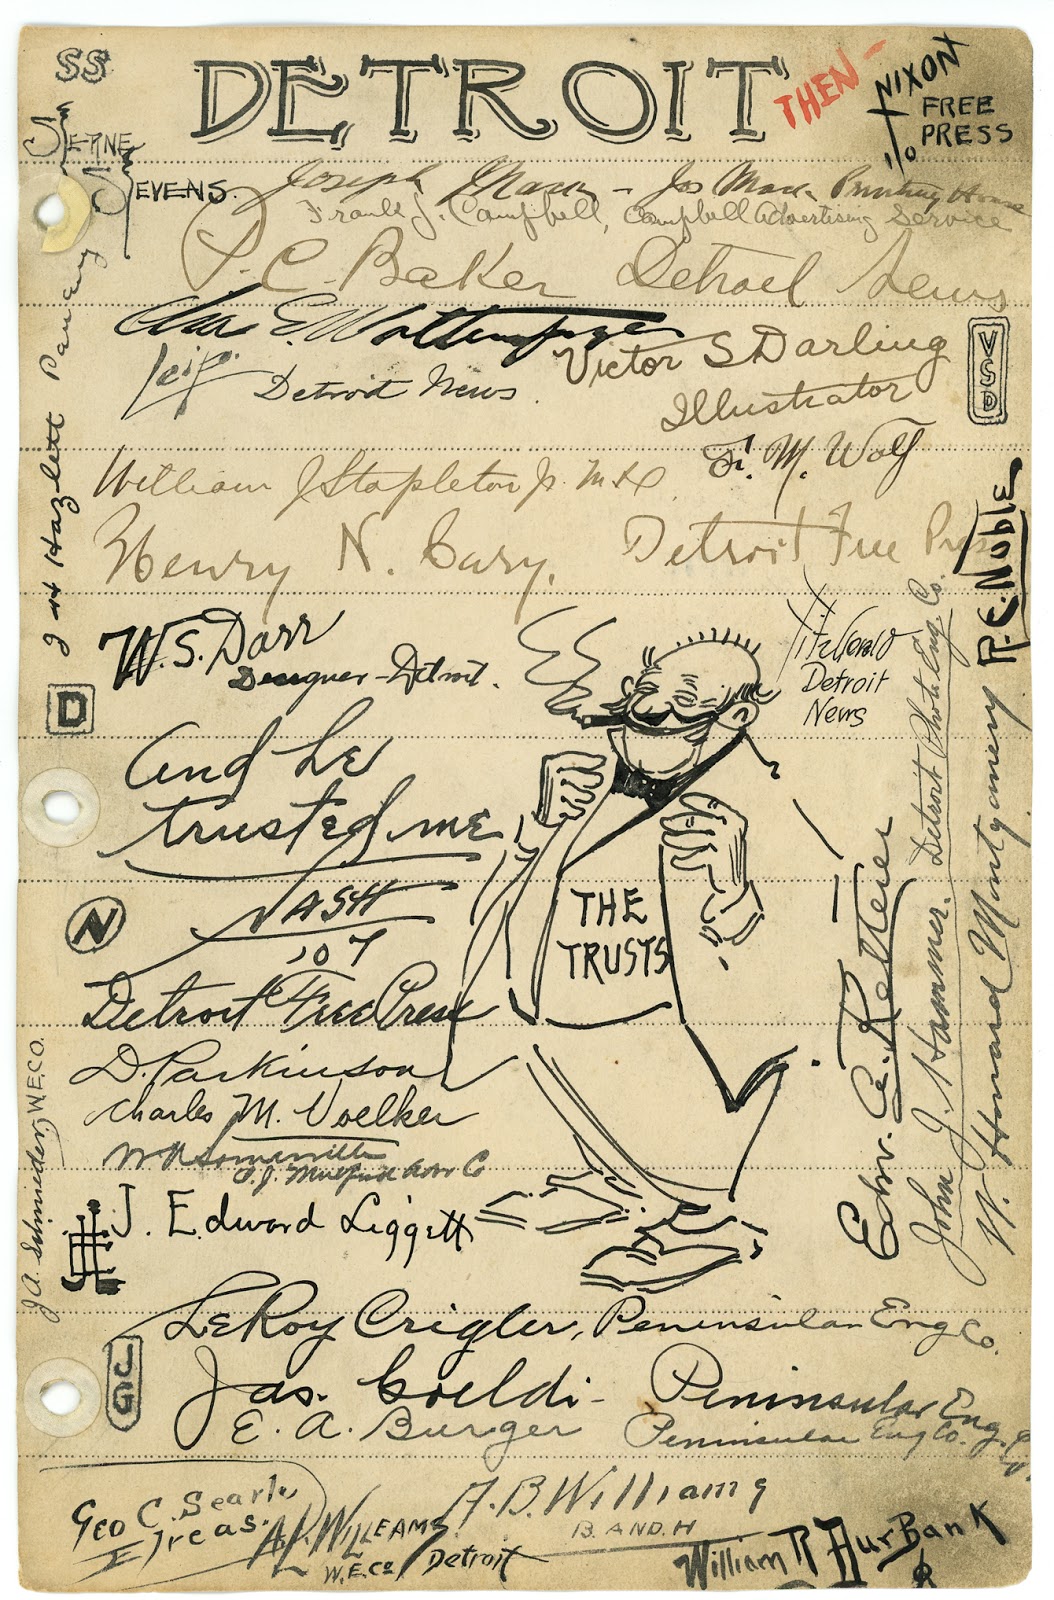 SS
DETROIT
THEN-
NIXON
FREE
PRESS
'10
STERNE
STEVENS.
Joseph Mack - Jos Mack Printing House
Frank J. Campbell, Campbell Advertising Service
P. C. Baker Detroit News
Chas E.
Detroit News.
Victor S Darling
Illustrator
VSD
F. M. Wolf
William J Stapleton Jr.
Henry N. Cary. Detroit Free Press
Hazlett
R.E. Noble
W. S. Darr
Designer - Detroit.
D
Fitzgerald
Detroit
News
And he
trusted me
NASH
'07
Detroit Free Press
THE
TRUSTS
N
D. Parkinson
Charles M. Voelker
W H Somerville
Co
J. Edward Liggett
J A. Schmieder, W.E.CO.
Edw. G.
John J. Hammer. Detroit Photo Eng. Co.
W. Howard Montgomery
LeRoy Crigler, Peninsular Eng Co.
JG
Jas. Goeldi - Peninsular Eng. Co.
E. A. Burger Peninsular Eng Co.
Geo C. Searle
Treas.
A.P. WILLEAMS
W.E.Co Detroit
A. B. Williams
B. AND. H
William R HurBank